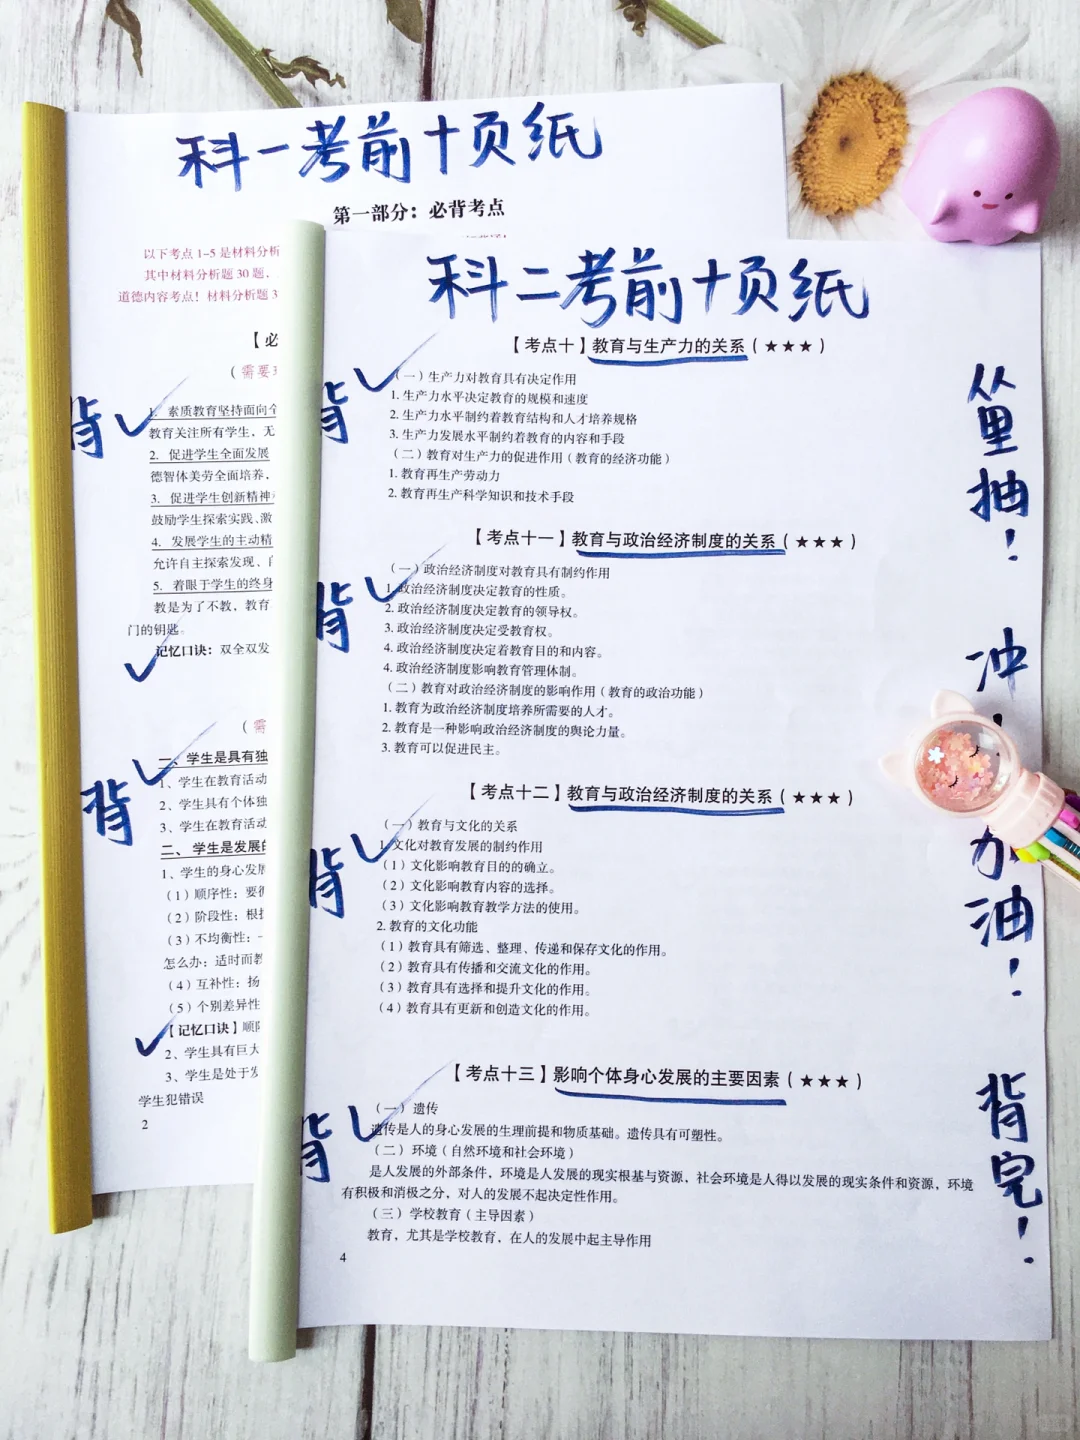 科一考前十页纸
第一部分：必背考点
以下考点 1-5 是材料分析
其中材料分析题 30 题，
道德内容考点！材料分析题 3
【必
（需要
背
1. 素质教育坚持面向全
教育关注所有学生、无
2. 促进学生全面发展
德智体美劳全面培养，
3. 促进学生创新精神
鼓励学生探索实践、激
4. 发展学生的主动精
允许自主探索发现、
5. 着眼于学生的终身
教是为了不教、教育
门的钥匙。
记忆口诀：双全双发
（需
背
一、学生是具有独
1、学生在教育活动
2、学生具有个体独
3、学生在教育活动
二、 学生是发展的
1、学生的身心发展
（1）顺序性：要循
（2）阶段性：根据
（3）不均衡性：
怎么办：适时而教
（4）互补性：扬
（5）个别差异性
【记忆口诀】顺阶
2、学生具有巨大
3、学生是处于发
学生犯错误
2
科二考前十页纸
【考点十】教育与生产力的关系（★★★）
背
（一）生产力对教育具有决定作用
1. 生产力水平决定教育的规模和速度
2. 生产力水平制约着教育结构和人才培养规格
3. 生产力发展水平制约着教育的内容和手段
（二）教育对生产力的促进作用（教育的经济功能）
1. 教育再生产劳动力
2. 教育再生产科学知识和技术手段
【考点十一】教育与政治经济制度的关系（★★★）
背
（一）政治经济制度对教育具有制约作用
1. 政治经济制度决定教育的性质。
2. 政治经济制度决定教育的领导权。
3. 政治经济制度决定受教育权。
4. 政治经济制度决定着教育目的和内容。
4. 政治经济制度影响教育管理体制。
（二）教育对政治经济制度的影响作用（教育的政治功能）
1. 教育为政治经济制度培养所需要的人才。
2. 教育是一种影响政治经济制度的舆论力量。
3. 教育可以促进民主。
【考点十二】教育与政治经济制度的关系（★★★）
背
（一）教育与文化的关系
1. 文化对教育发展的制约作用
（1）文化影响教育目的的确立。
（2）文化影响教育内容的选择。
（3）文化影响教育教学方法的使用。
2. 教育的文化功能
（1）教育具有筛选、整理、传递和保存文化的作用。
（2）教育具有传播和交流文化的作用。
（3）教育具有选择和提升文化的作用。
（4）教育具有更新和创造文化的作用。
【考点十三】影响个体身心发展的主要因素（★★★）
背
（一）遗传
遗传是人的身心发展的生理前提和物质基础。遗传具有可塑性。
（二）环境（自然环境和社会环境）
是人发展的外部条件，环境是人发展的现实根基与资源，社会环境是人得以发展的现实条件和资源，环境
有积极和消极之分，对人的发展不起决定性作用。
（三）学校教育（主导因素）
教育，尤其是学校教育，在人的发展中起主导作用
4
从里抽！
冲！
加油！
背完！